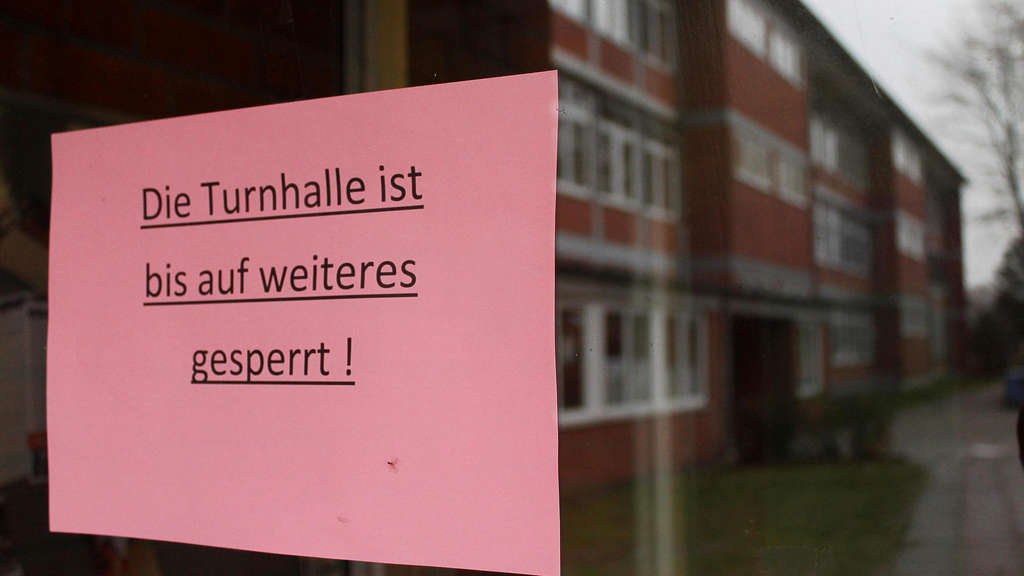 Die Turnhalle ist
bis auf weiteres
gesperrt !